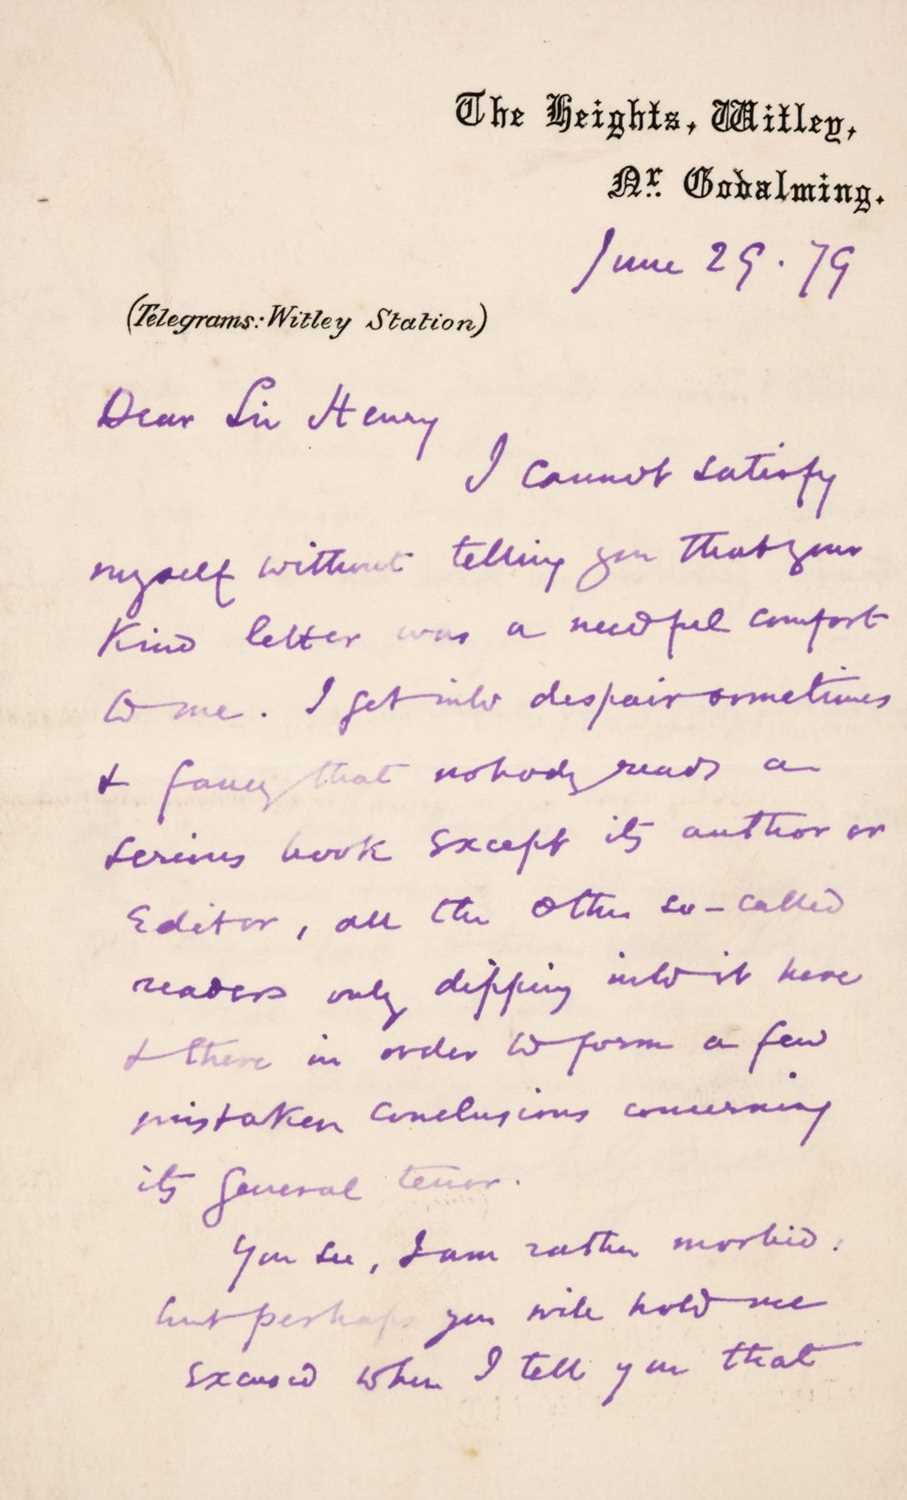 The Heights, Witley,
Nr. Godalming.
June 29. 79
(Telegrams: Witley Station)
Dear Sir Henry
I cannot satisfy
myself without telling you that your
kind letter was a needful comfort
to me. I get into despair sometimes
& fancy that nobody reads a
serious book except its author or
Editor, all the other so-called
readers only dipping into it here
& there in order to form a few
mistaken conclusions concerning
its general tenor.
You see, I am rather morbid.
but perhaps you will hold me
excused when I tell you that